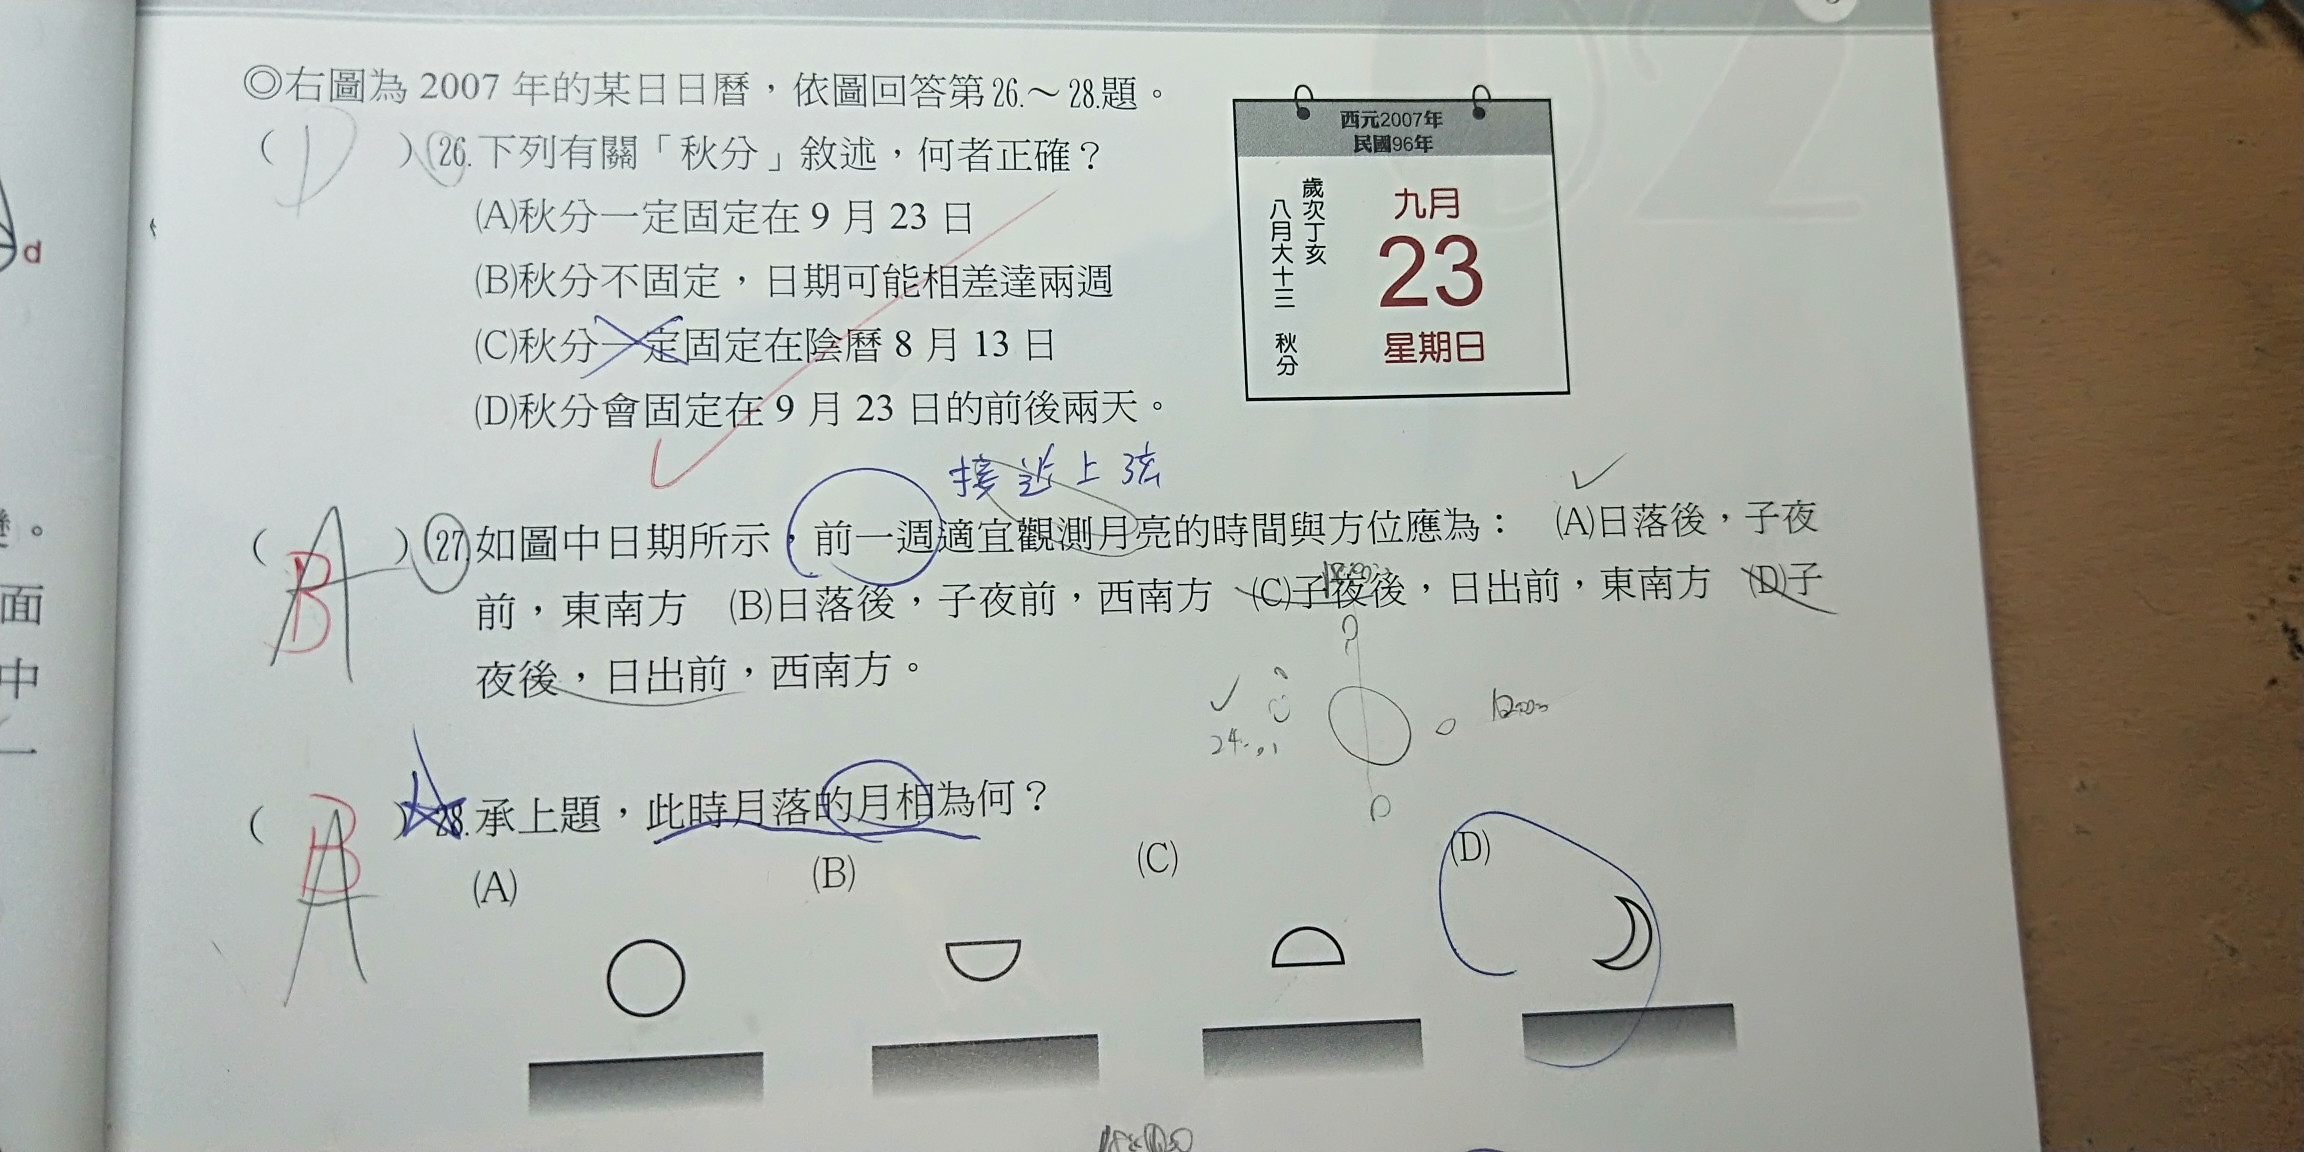 ◎右圖為 2007 年的某日日曆，依圖回答第26.～28.題。
( D )26.下列有關「秋分」敘述，何者正確？
(A)秋分一定固定在 9 月 23 日
(B)秋分不固定，日期可能相差達兩週
(C)秋分一定固定在陰曆 8 月 13 日
(D)秋分會固定在 9 月 23 日的前後兩天。
西元2007年
民國96年
九月
23
星期日
歲次丁亥
八月大十三 秋分
接近上弦
( A B )27.如圖中日期所示，前一週適宜觀測月亮的時間與方位應為： (A)日落後，子夜
前，東南方 (B)日落後，子夜前，西南方 (C)子夜後，日出前，東南方 (D)子
夜後，日出前，西南方。
( A B )28.承上題，此時月落的月相為何？
(A) (B) (C) (D)
d
。
面
中
一